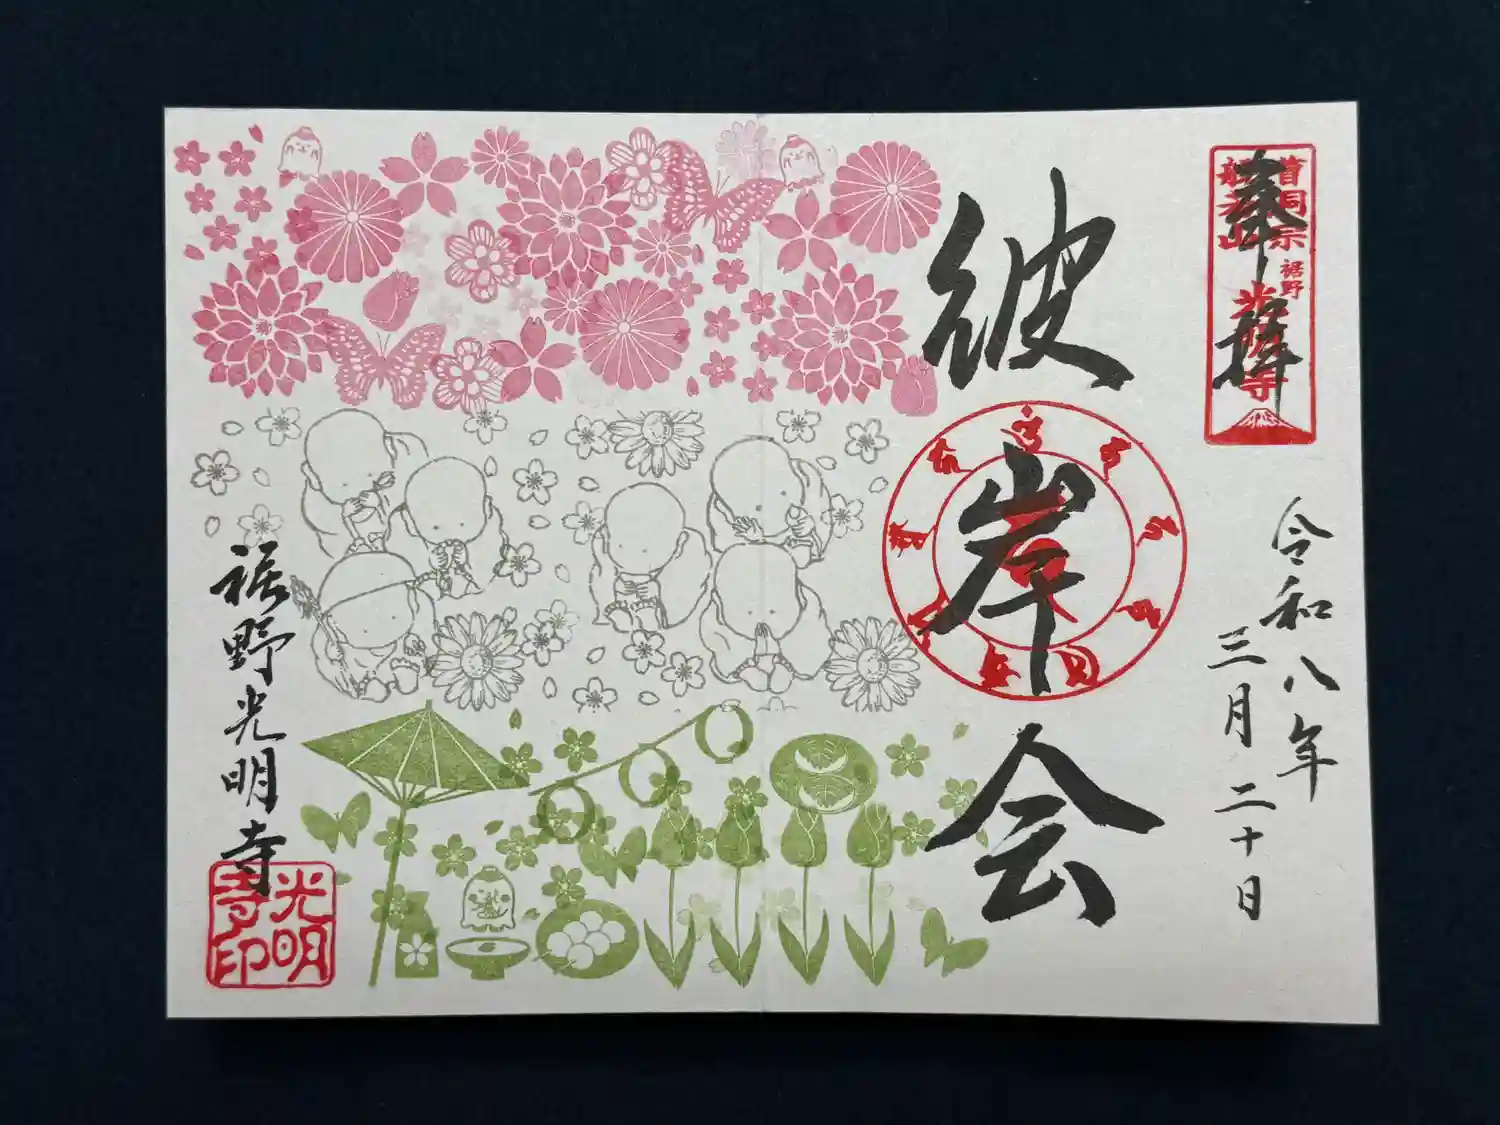 奉拝
曹洞宗
般若山
裾野
光明寺
令和八年
三月二十日
彼岸会
裾野光明寺
光明
寺印